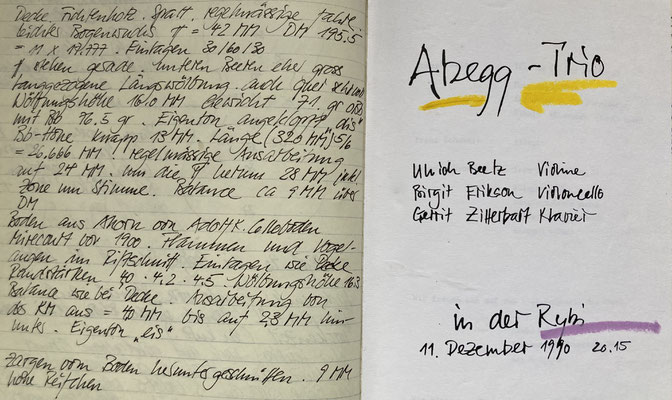 Decke. Fichtenholz. Spalt. regelmässige Jahre
leichter Bogenwuchs f = 42 MM DM 195.5
= 11 x 17.777. Einlagen 30/60/30
f stehen gerade. Unteren Beeren eher gross
langgezogene Längswölbung. auch quer
Wölbungshöhe 16.0 MM Gewicht 71. gr ohne
mit Bb 96.5 gr. Eigenton "dis"
Bb-Höhe knapp 13 MM. Länge (320 MM) 5/6
= 26.666 MM. regelmässige Ausarbeitung
auf 24 MM. um die f herum 28 MM inkl
Zone um Stimme. Balance ca 9 MM über
DM
Boden aus Ahorn von Adolf K.
Mirecourt vor 1900. Flammen und Vogel-
augen im Riftschnitt. Einlagen wie Decke
Randstärken 40. 4.2. 4.5. Wölbungshöhe
Balance wie bei Decke. Ausarbeitung von
des KM aus = 40 MM bis auf 2,3 MM hin-
unter. Eigenton "eis"
Zargen vom Boden heruntergeschnitten. 9 MM
hohe Reifchen
Abegg-Trio
Ulrich Beetz Violine
Birgit Erikson Violoncello
Gerrit Zitterbart Klavier
in der Rybi
11. Dezember 1990 20.15